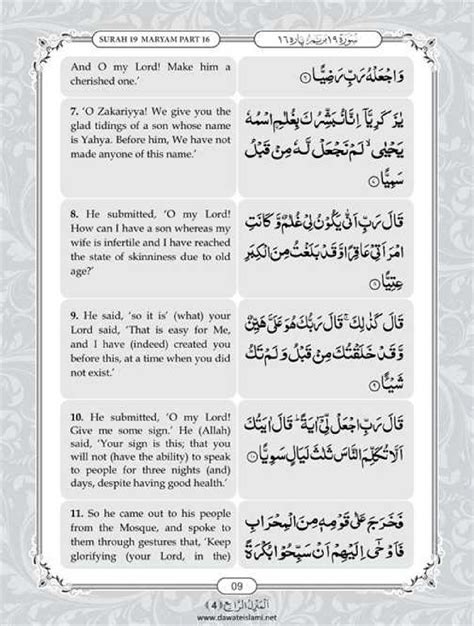 SURAH 19 MARYAM PART 16
سُوْرَةُ ١٩ مَرْيَم پاره ١٦
And O my Lord! Make him a
cherished one.’
وَاجْعَلْهُ رَبِّ رَضِيًّا ﴿٦﴾
7. ‘O Zakariyya! We give you the
glad tidings of a son whose name
is Yahya. Before him, We have not
made anyone of this name.’
يٰزَكَرِيَّآ اِنَّا نُبَشِّرُكَ بِغُلٰمِ اسْمُهٗ
يَحْيٰى ۙ لَمْ نَجْعَلْ لَّهٗ مِنْ قَبْلُ
سَمِيًّا ﴿٧﴾
8. He submitted, ‘O my Lord!
How can I have a son whereas my
wife is infertile and I have reached
the state of skinniness due to old
age?’
قَالَ رَبِّ اَنّٰى يَكُوْنُ لِيْ غُلٰمٌ وَّكَانَتِ
امْرَاَتِيْ عَاقِرًا وَّقَدْ بَلَغْتُ مِنَ الْكِبَرِ
عِتِيًّا ﴿٨﴾
9. He said, ‘so it is’ (what) your
Lord said, ‘That is easy for Me,
and I have (indeed) created you
before this, at a time when you did
not exist.’
قَالَ كَذٰلِكَ ۚ قَالَ رَبُّكَ هُوَ عَلَيَّ هَيِّنٌ
وَّقَدْ خَلَقْتُكَ مِنْ قَبْلُ وَلَمْ تَكُ
شَيْـًٔا ﴿٩﴾
10. He submitted, ‘O my Lord!
Give me some sign.’ He (Allah)
said, ‘Your sign is this; that you
will not (have the ability) to speak
to people for three nights (and)
days, despite having good health.’
قَالَ رَبِّ اجْعَلْ لِّيْٓ اٰيَةً ؕ قَالَ اٰيَتُكَ
اَلَّا تُكَلِّمَ النَّاسَ ثَلٰثَ لَيَالٍ سَوِيًّا ﴿١٠﴾
11. So he came out to his people
from the Mosque, and spoke to
them through gestures that, ‘Keep
glorifying (your Lord, in the)
فَخَرَجَ عَلٰى قَوْمِهٖ مِنَ الْمِحْرَابِ
فَاَوْحٰٓى اِلَيْهِمْ اَنْ سَبِّحُوْا بُكْرَةً
09
اَلْمَنْزِلُ الرَّابِع ﴿4﴾
www.dawateislami.net